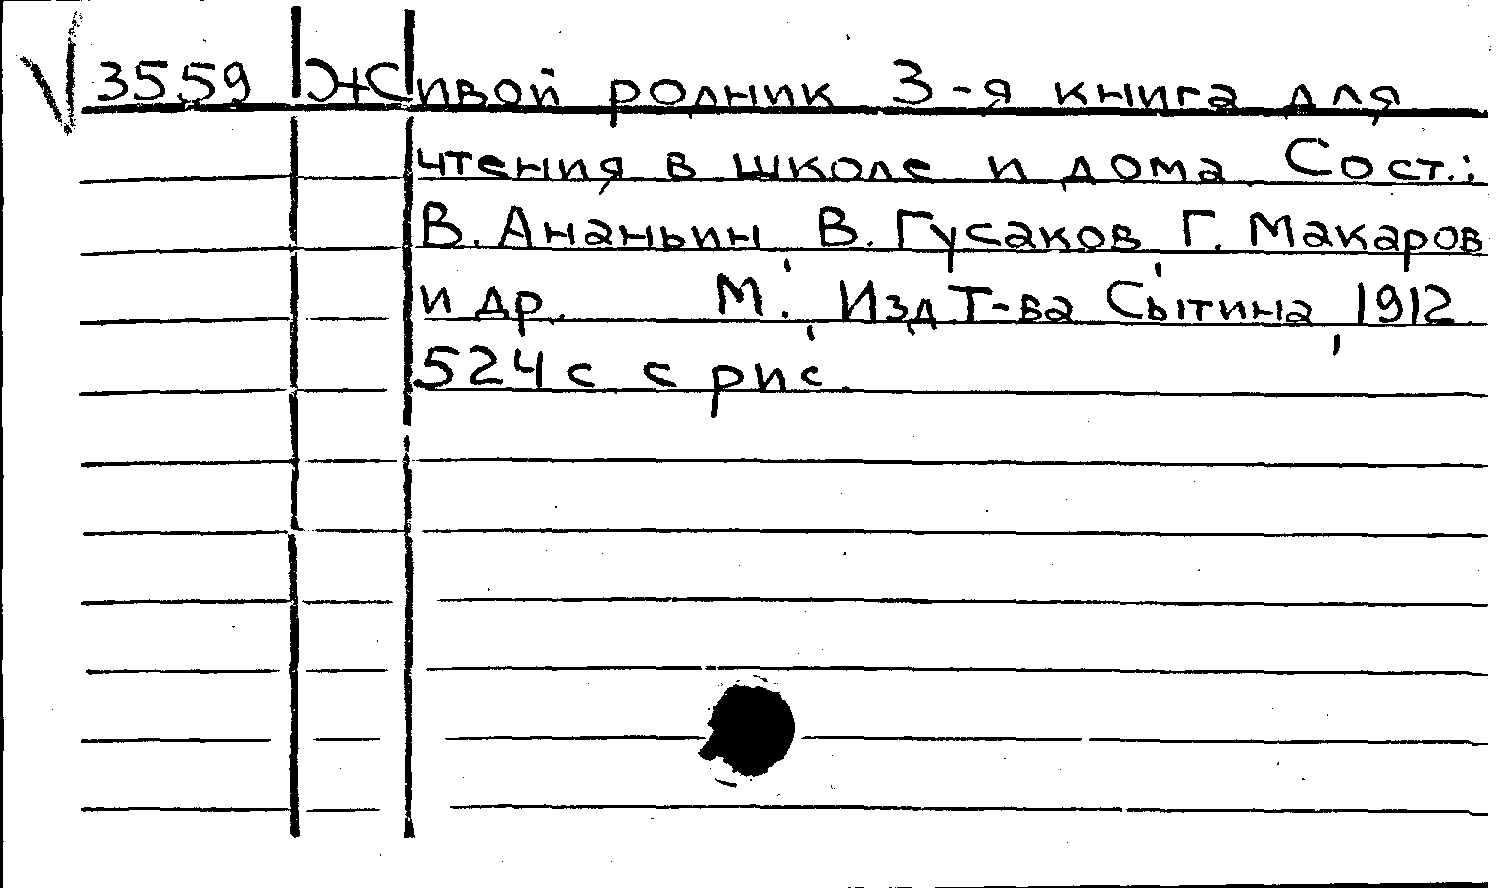 3559 Живой родник 3-я книга для
чтения в школе и дома Сост.:
В. Ананьин, В. Гусаков, Г. Макаров
и др. М., Изд Т-ва Сытина, 1912
524 с с рис.